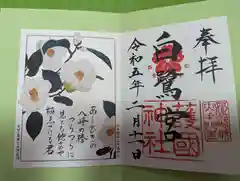 奉拝
白鷺宮
護國
神社
令和五年二月十一日
あしひきの
八峰の椿
つらつらに
見とも飽かめや
植ゑてける君